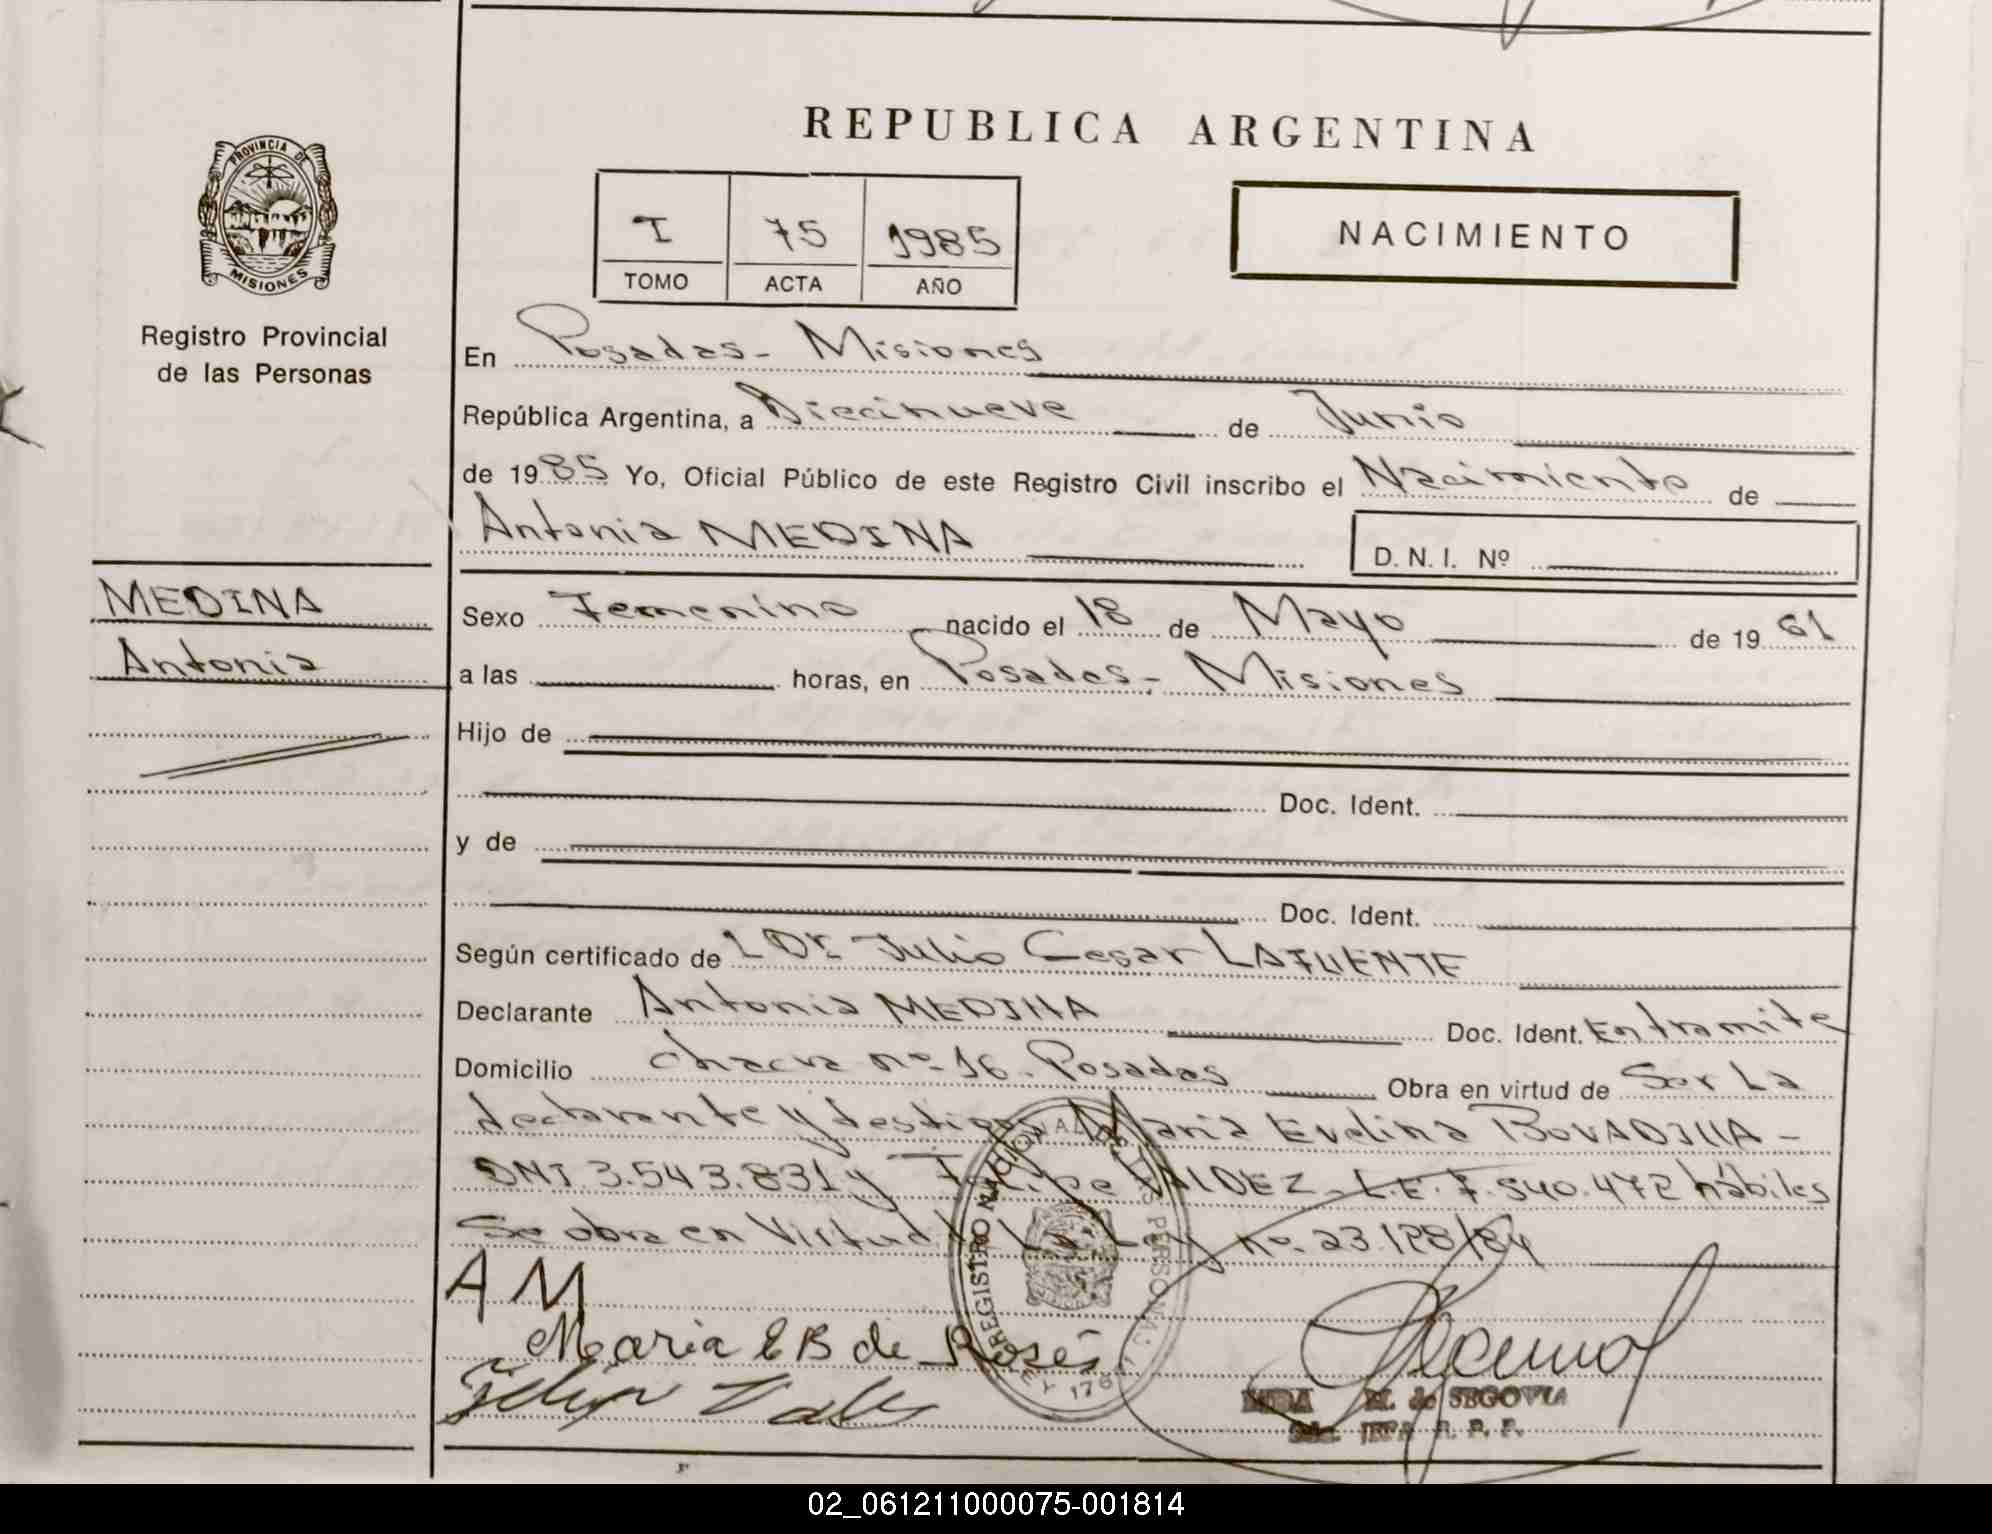 REPUBLICA ARGENTINA
PROVINCIA DE
MISIONES
Registro Provincial
de las Personas
I 75 1985
TOMO ACTA AÑO
NACIMIENTO
En Posadas - Misiones
República Argentina, a Diecinueve de Junio
de 1985 Yo, Oficial Público de este Registro Civil inscribo el Nacimiento de
Antonia MEDINA D.N.I. Nº
MEDINA
Antonia
Sexo Femenino nacido el 18 de Mayo de 1961
a las horas, en Posadas - Misiones
Hijo de
Doc. Ident.
y de
Doc. Ident.
Según certificado de l Dr. Julio Cesar LAFUENTE
Declarante Antonia MEDINA Doc. Ident. En tramite
Domicilio chacra nº 16. Posadas Obra en virtud de Ser La
declarante y testigos María Evelina BOVADILLA -
DNI 3.543.831 y Felipe VALDEZ - L.E. 7.540.472 hábiles
Se obra en Virtud La Ley nº 23.128/84
A M
Maria E B de
REGISTRO NACIONAL DE LAS PERSONAS
M. de SEGOVIA
JEFA R. P. P.
02_061211000075-001814